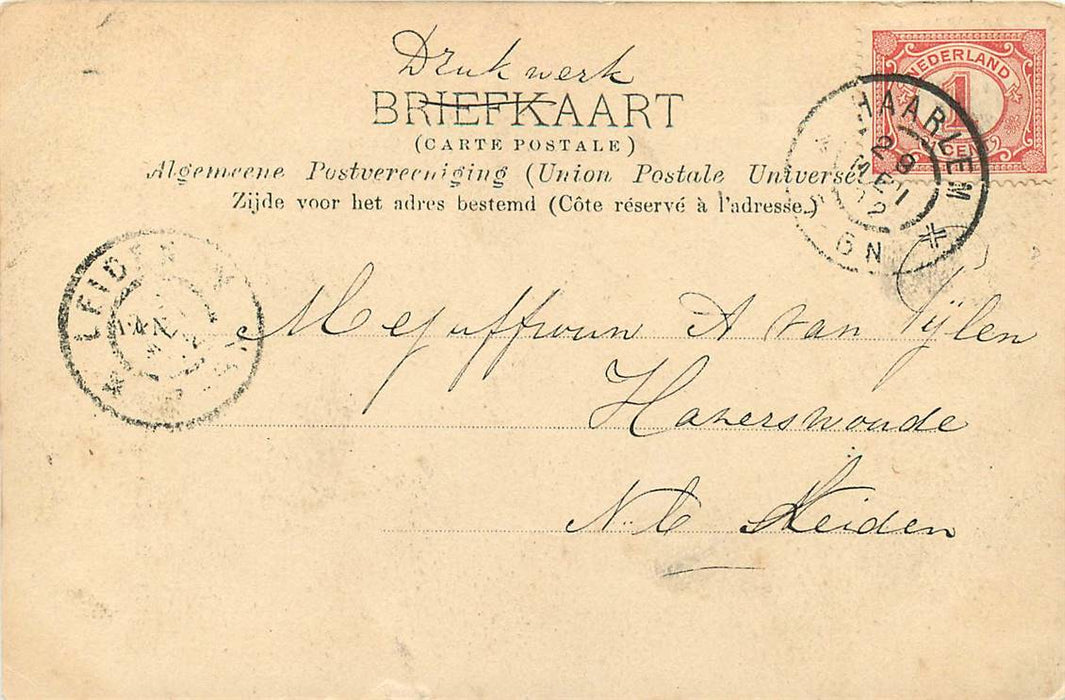 Drukwerk
BRIEFKAART
(CARTE POSTALE)
Algemeene Postvereeniging (Union Postale Universe
Zijde voor het adres bestemd (Côte réservé à l'adresse.)
NEDERLAND
1
CEN
HAARLEM
29
MEI
02
ON
LEIDEN
Mejuffrouw A van Tijlen
Hazerswoude
Leiden